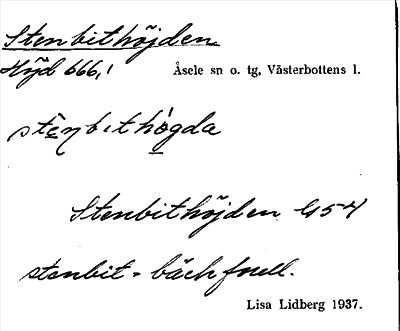 Stenbithöjden
Höjd 666,1
Åsele sn o. tg, Västerbottens l.
Stenbithöjden G54
stenbit = bäckforell.
Lisa Lidberg 1937.